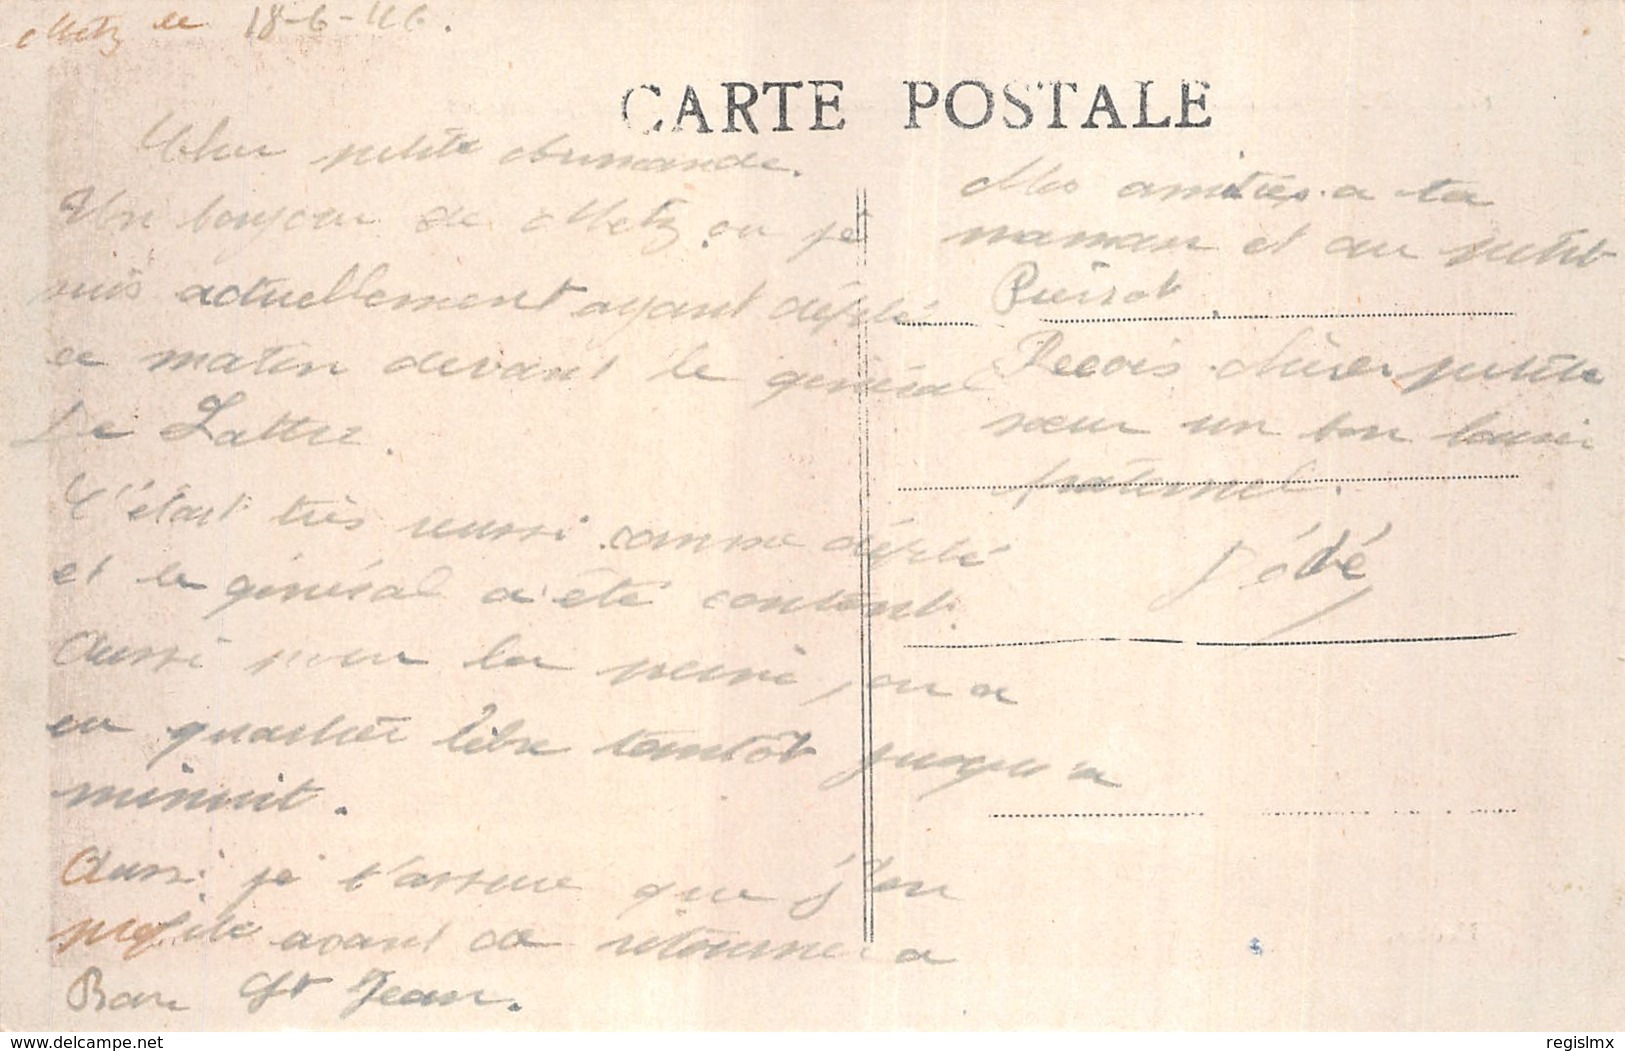 Metz le 18-6-46.
CARTE POSTALE
Cher petite Armande.
Un bonjour de Metz ou je
suis actuellement ayant défilé
ce matin devant le général
De Lattre.
C'était très reussi comme défilé
et le général a été content.
Aussi pour la peine, on a
eu quartier libre tantôt jusqu'a
minuit.
Aussi je t'assure que j'en
profite avant de retourner a
Bar St Jean.
Mes amitiés a ta
maman et au petit
Pierrot
Recois chère petite
sœur un bon baiser
fraternel.
Dédé
delcampe.net
regislmx